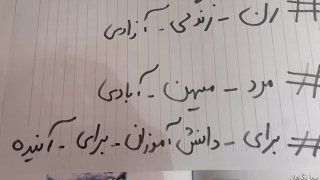 # زن - زندگی - آزادی
# مرد - میهن - آبادی
# برای - دانش آموزان - برای - آینده